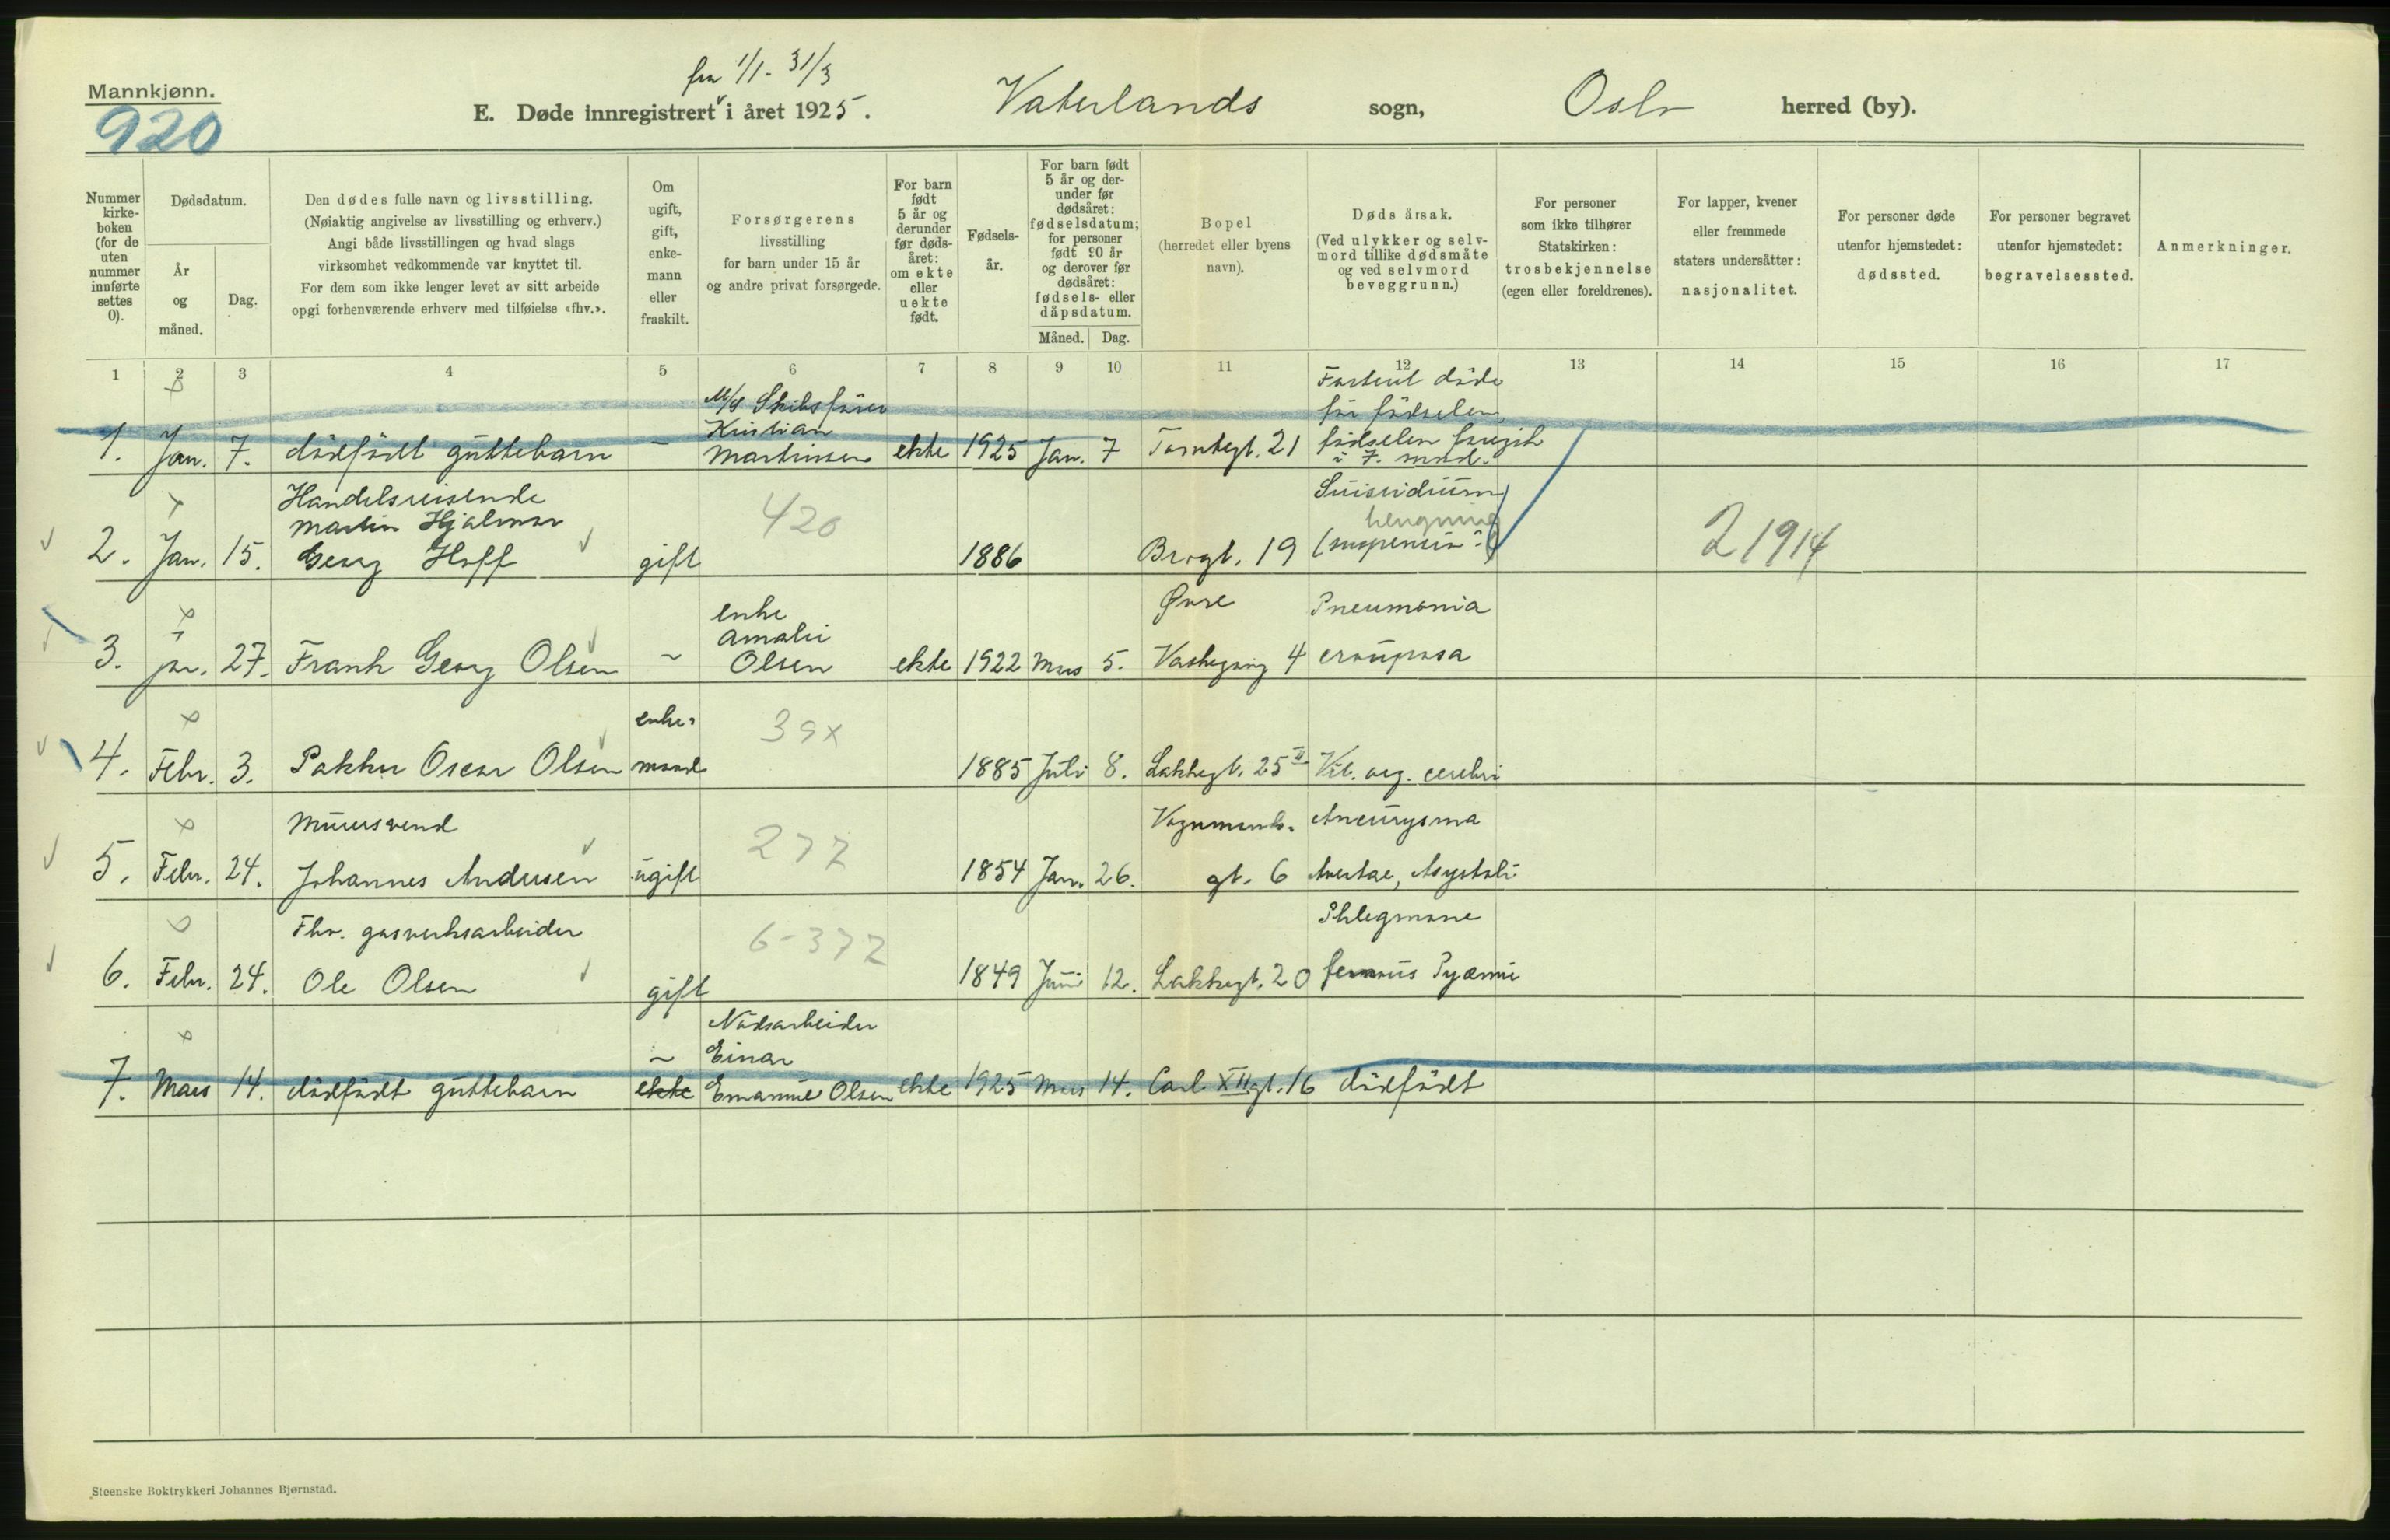 Mannkjønn.
920
fra 1/1 - 31/3
E. Døde innregistrert i året 1925.
Vaterlands sogn, Oslo herred (by).
Nummer kirke-boken (for de uten nummer innførte settes 0).
Dødsdatum.
År og måned.
Dag.
Den dødes fulle navn og livsstilling.
(Nøiaktig angivelse av livsstilling og erhverv.)
Angi både livsstillingen og hvad slags
virksomhet vedkommende var knyttet til.
For dem som ikke lenger levet av sitt arbeide
opgi forhenværende erhverv med tilføielse «fhv.».
Om ugift, gift, enke-mann eller fraskilt.
Forsørgerens
livsstilling
for barn under 15 år
og andre privat forsørgede.
For barn født 5 år og derunder før døds-året: om ekte eller uekte født.
Fødsels-år.
For barn født 5 år og der-under før dødsåret: fødselsdatum; for personer født 90 år og derover før dødsåret: fødsels- eller dåpsdatum.
Måned. Dag.
Bopel
(herredet eller byens
navn).
Dødsårsak.
(Ved ulykker og selv-
mord tillike dødsmåte
og ved selvmord
beveggrunn.)
For personer
som ikke tilhører
Statskirken:
trosbekjennelse
(egen eller foreldrenes).
For lapper, kvener
eller fremmede
staters undersåtter:
nasjonalitet.
For personer døde
utenfor hjemstedet:
dødssted.
For personer begravet
utenfor hjemstedet:
begravelsessted.
Anmerkninger.
1 2 3 4 5 6 7 8 9 10 11 12 13 14 15 16 17
M/S Skibsfører
Kristian
Fosteret døde
før fødselen
1. Jan. 7. dødfødt guttebarn – Martinsen ekte 1925 Jan. 7 Tomtegt. 21 fødselen foregik
i 7. mnd.
Handelsreisende
Martin Hjalmar
420
Suisidium
hengning
2. Jan. 15. Georg Hoff gift 1886 Brogt. 19 (suspensio) 21914
enke
Amalie
Øvre
Pneumonia
3. jan. 27. Frank Georg Olsen – Olsen ekte 1922 Mars 5. Vaskegang 4 crouposa
enke-
39x
4. Febr. 3. Pakker Oscar Olsen mand 1885 Juli 8. Lakkegt. 25 II Vit. org. cerebri
Murersvend
277
Vognmands-
Aneurysma
5. Febr. 24. Johannes Andersen ugift 1854 Jan. 26. gt. 6 Aortae, Asystoli
Fhv. gasverksarbeider
6-377
Phlegmone
6. Febr. 24. Ole Olsen gift 1849 Juni 12. Lakkegt. 20 femoris Pyæmi
Nødsarbeider
– Einar
7. Mars 14. dødfødt guttebarn ekte Emanuel Olsen ekte 1925 Mars 14. Carl XII gt. 16 dødfødt
Steenske Boktrykkeri Johannes Bjørnstad.